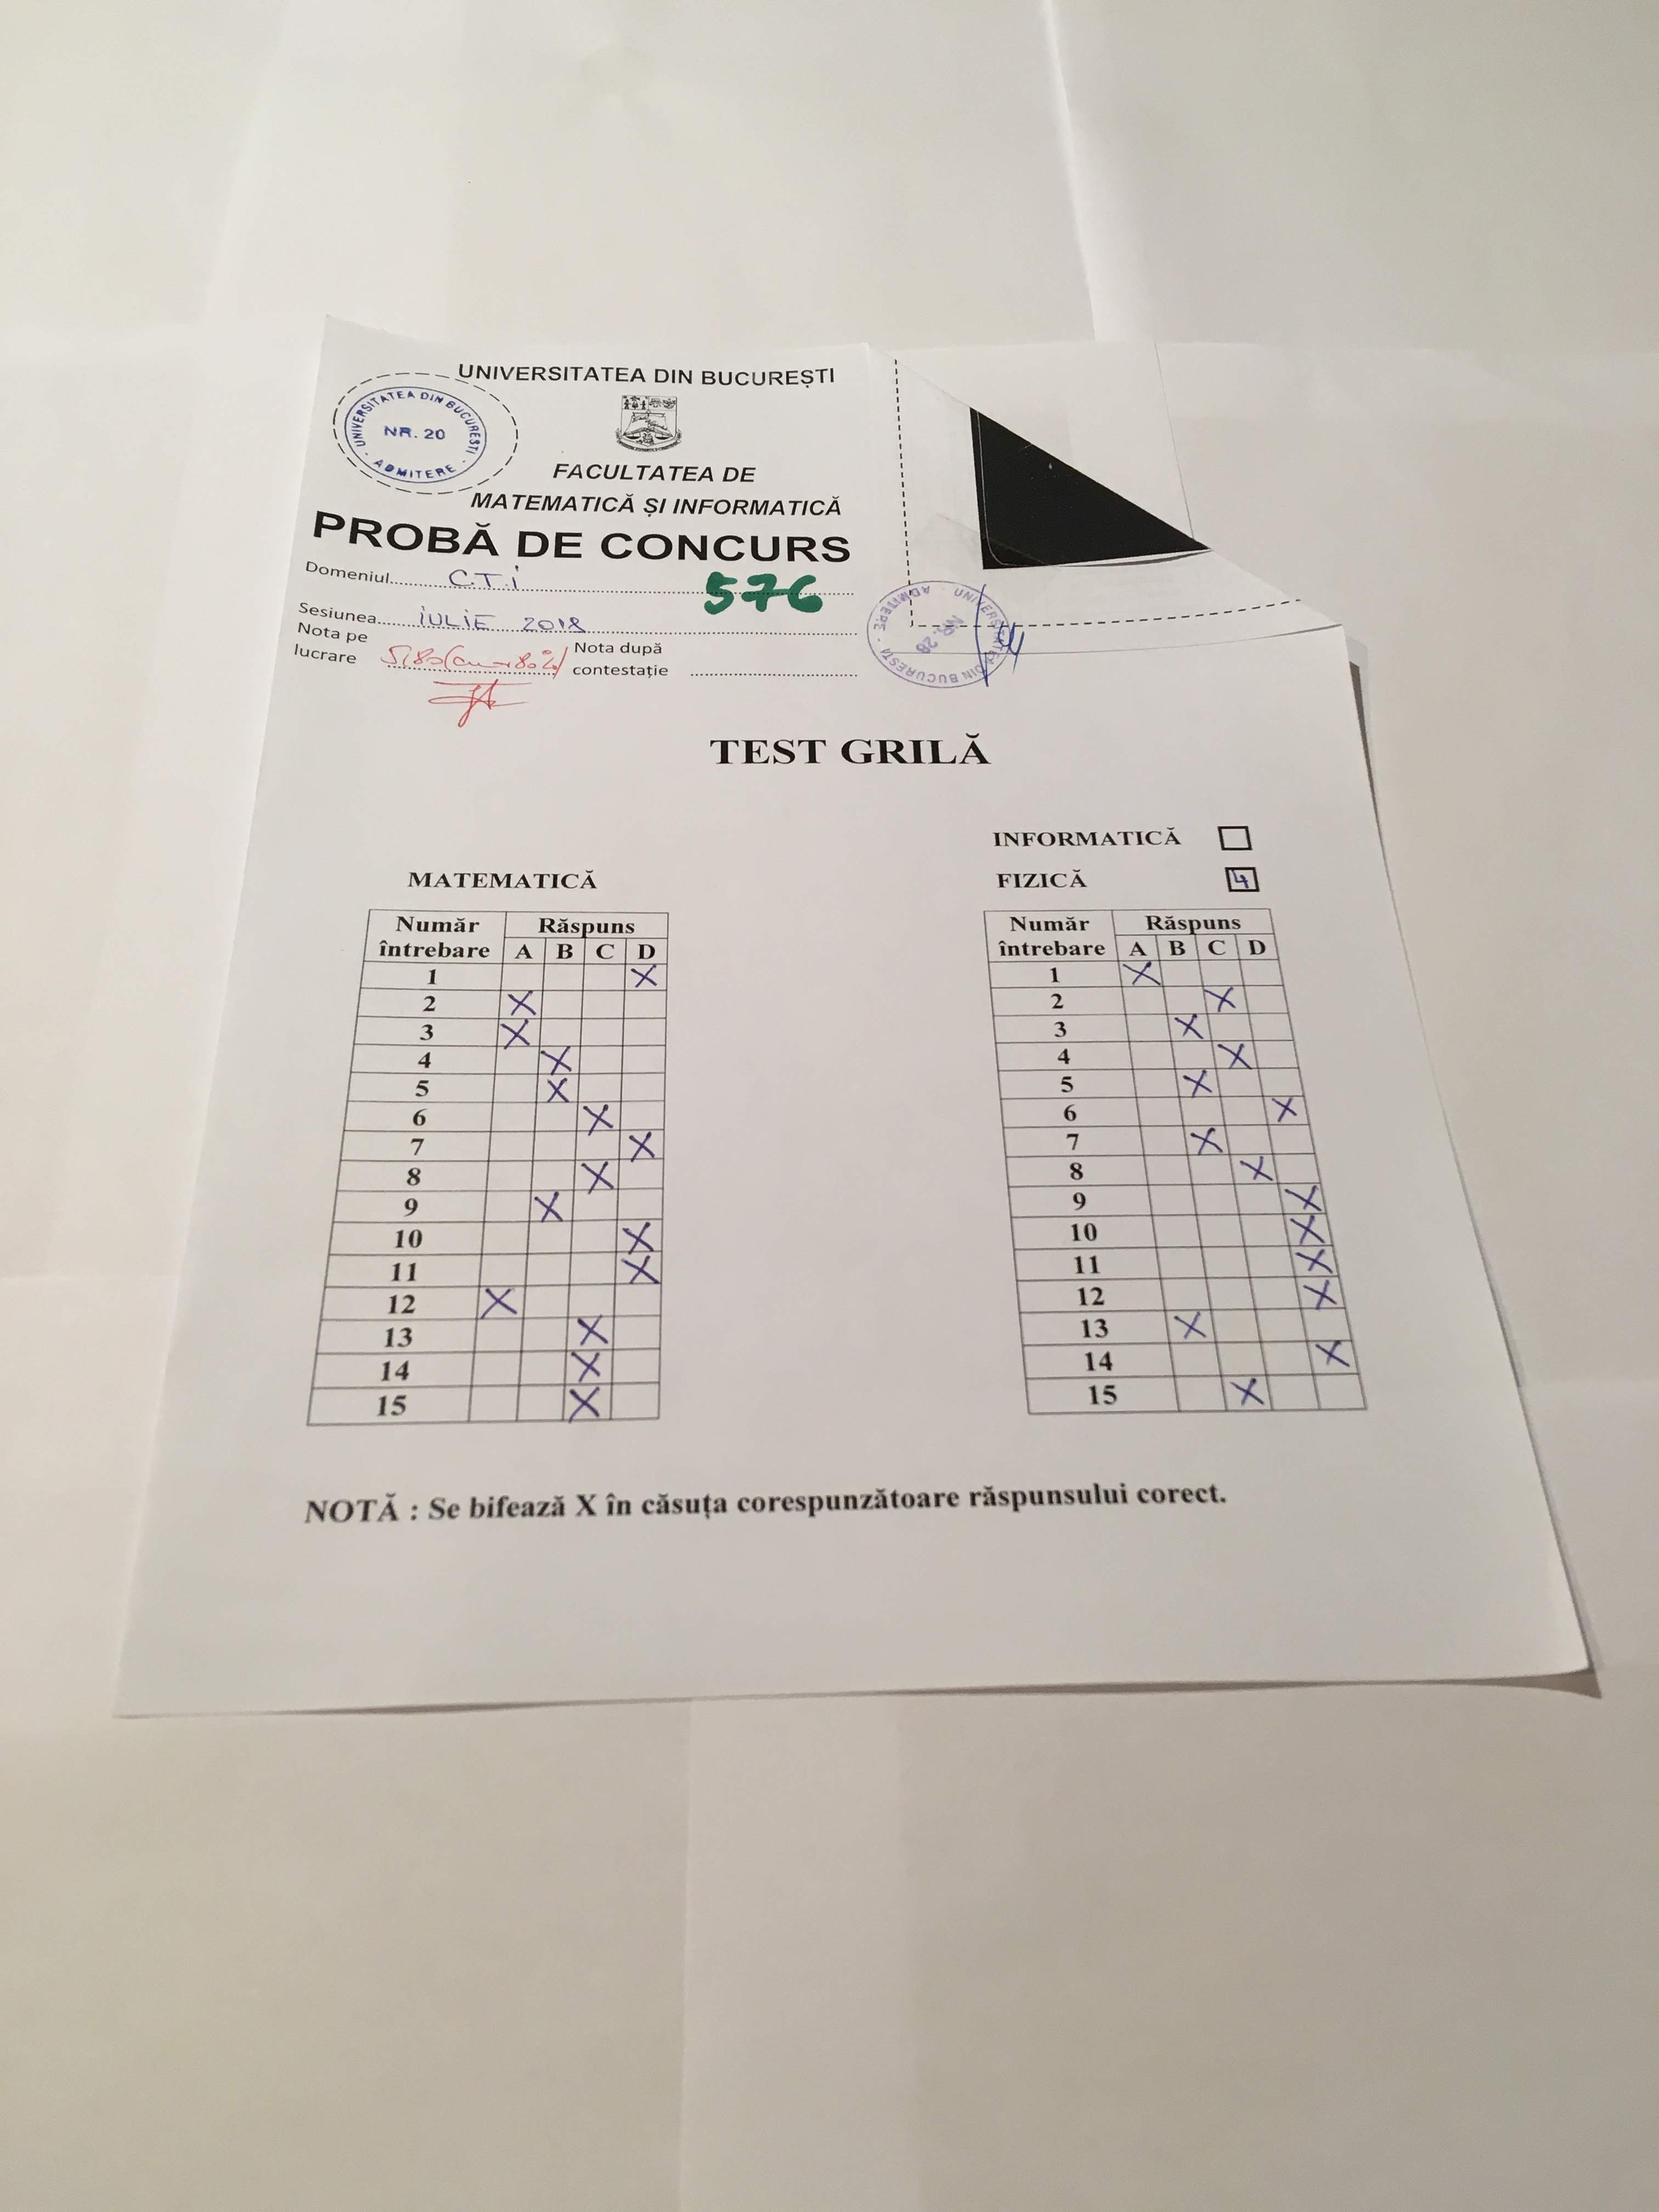 UNIVERSITATEA DIN BUCUREȘTI
UNIVERSITATEA DIN BUCUREȘTI
NR. 20
ADMITERE
FACULTATEA DE
MATEMATICĂ ȘI INFORMATICĂ
PROBĂ DE CONCURS
Domeniul C.T.I 576
Sesiunea IULIE 2018
Nota pe lucrare
Nota după contestație
UNIVERSITATEA DIN BUCUREȘTI
NR. 28
ADMITERE
TEST GRILĂ
INFORMATICĂ
MATEMATICĂ
FIZICĂ 4
Număr întrebare Răspuns
A B C D
1 X
2 X
3 X
4 X
5 X
6 X
7 X
8 X
9 X
10 X
11 X
12 X
13 X
14 X
15 X
Număr întrebare Răspuns
A B C D
1 X
2 X
3 X
4 X
5 X
6 X
7 X
8 X
9 X
10 X
11 X
12 X
13 X
14 X
15 X
NOTĂ : Se bifează X în căsuța corespunzătoare răspunsului corect.